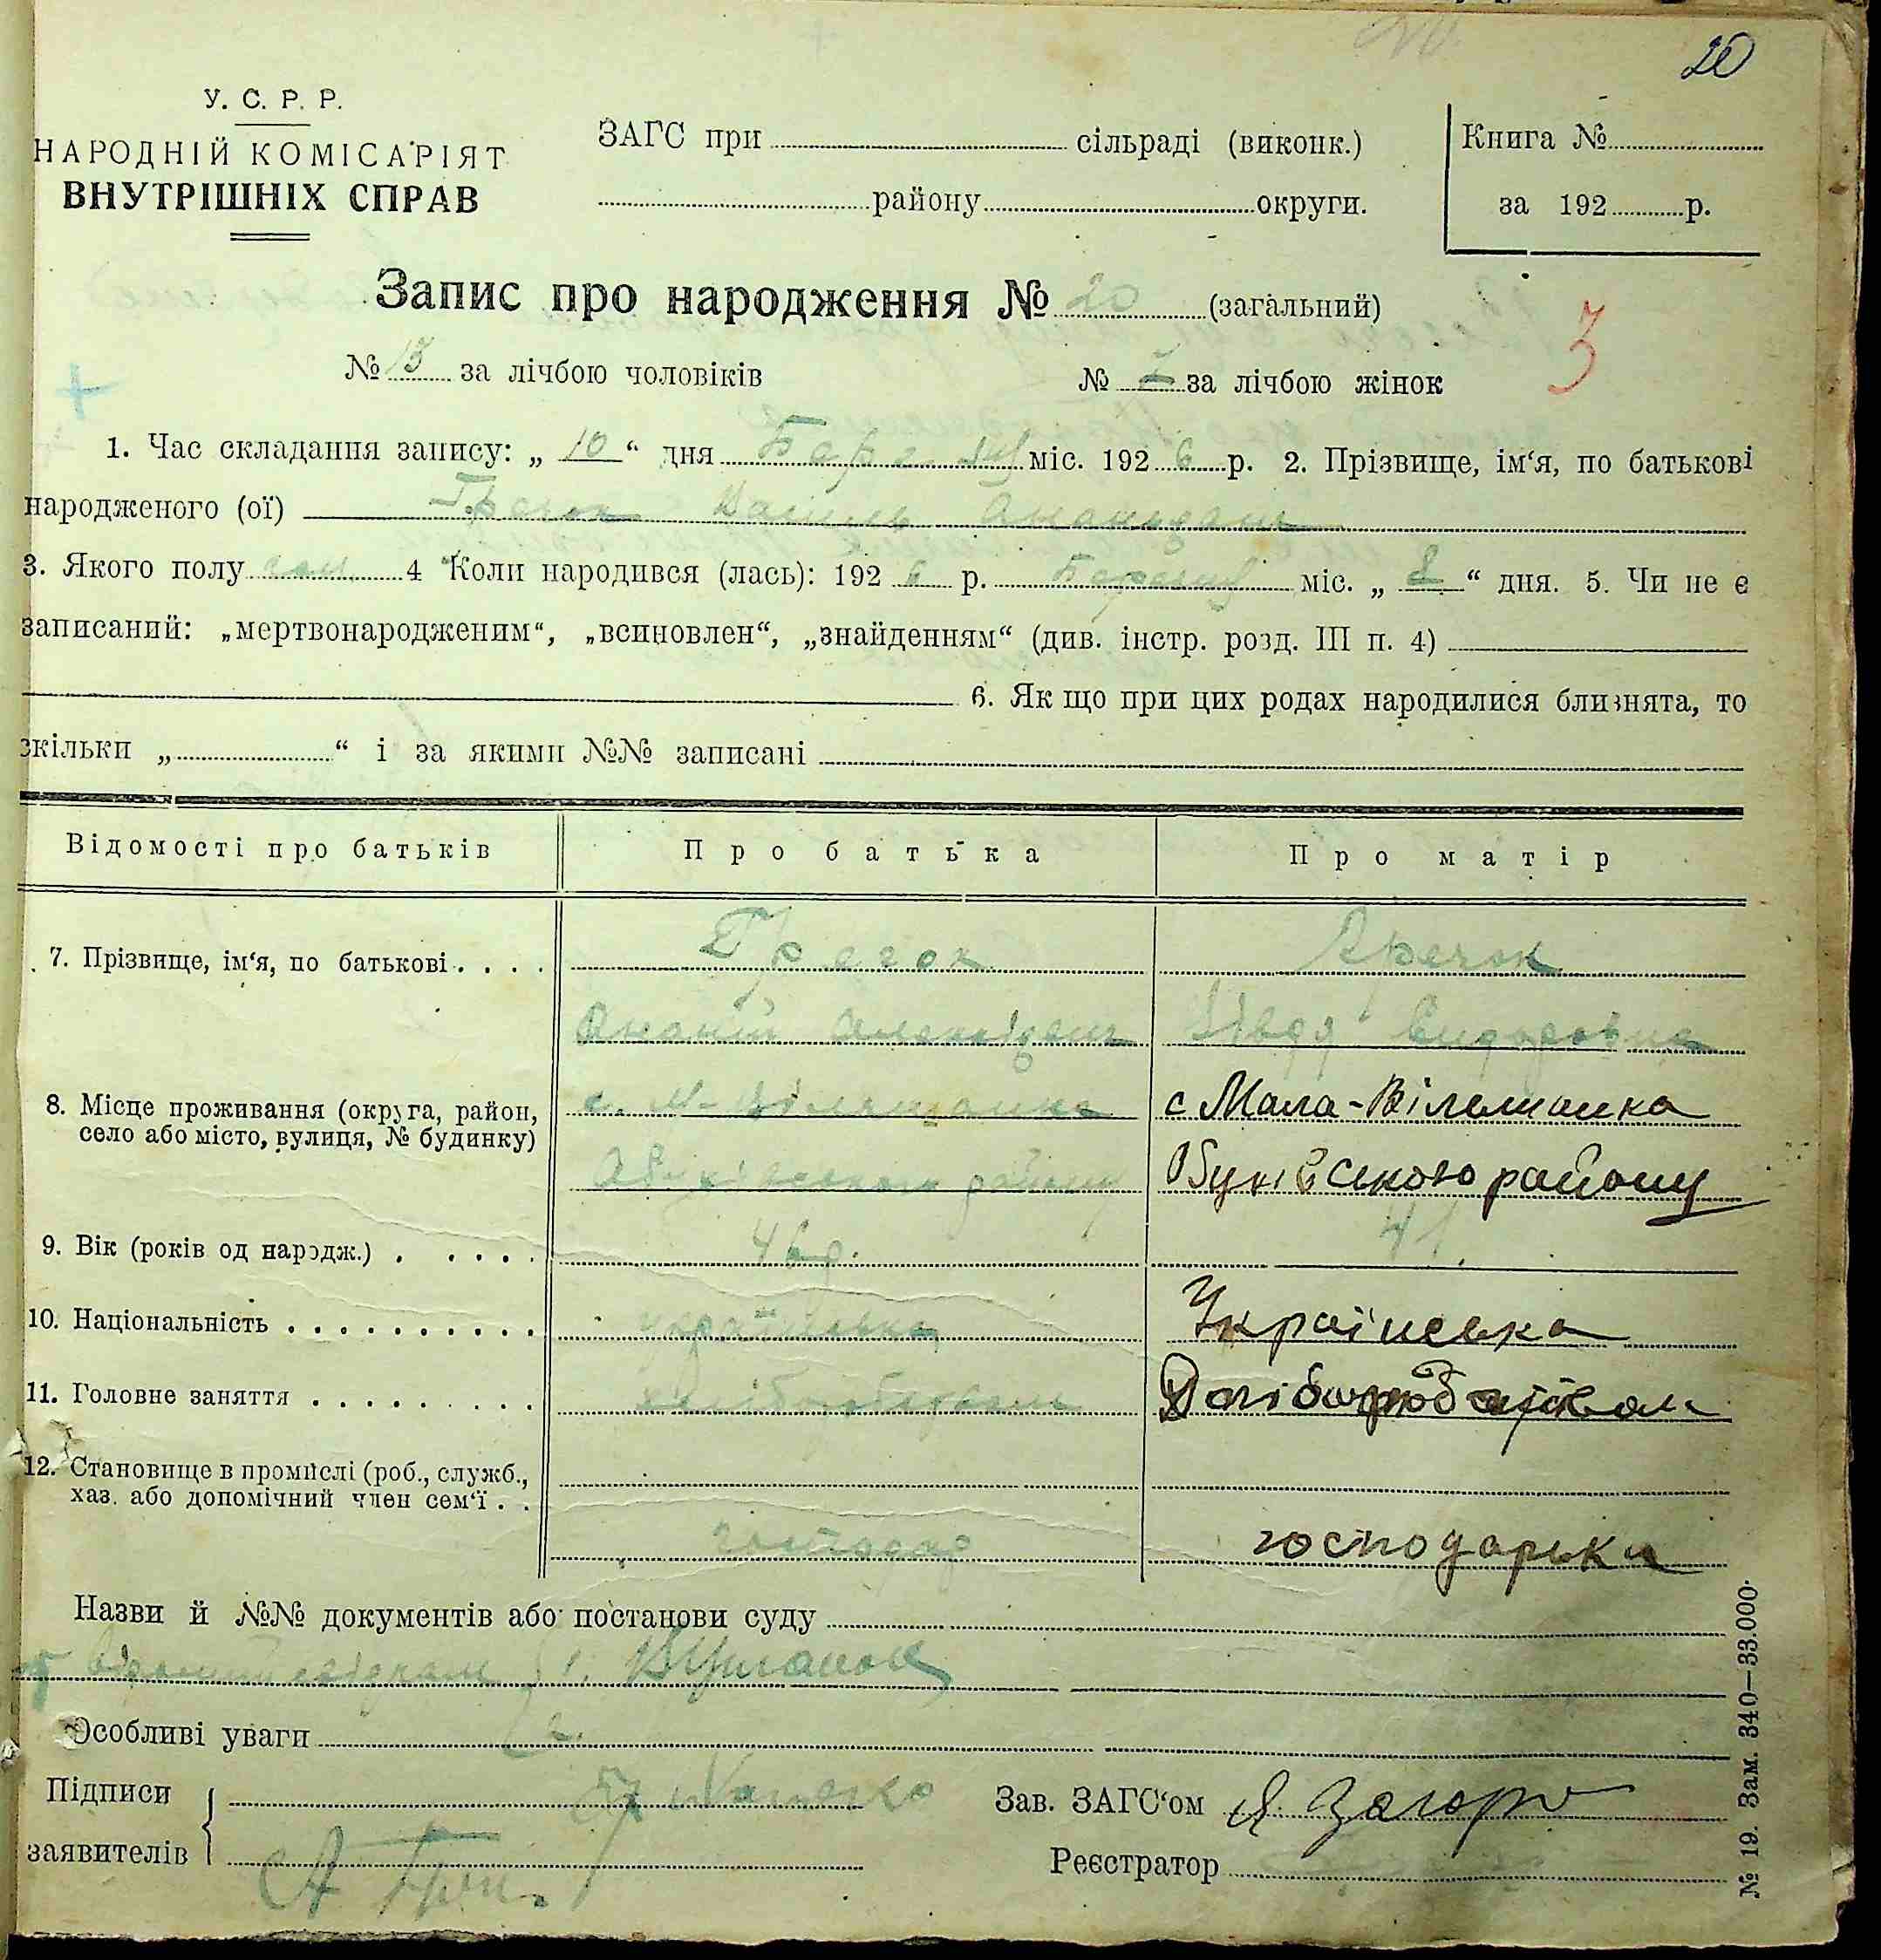 20
У. С. Р. Р.
НАРОДНІЙ КОМІСАРІЯТ
ВНУТРІШНІХ СПРАВ
ЗАГС при сільраді (виконк.)
району округи.
Книга №
за 192 р.
Запис про народження № 20 (загальний)
3
№ 13 за лічбою чоловіків № 7 за лічбою жінок
1. Час складання запису: „ 10 “ дня міс. 192 6 р. 2. Прізвище, ім‘я, по батькові
народженого (ої) Гречок Василь
3. Якого полу чол. 4 Коли народився (лась): 192 6 р. Березня міс. „ 8 “ дня. 5. Чи не є
записаний: „мертвонародженим“, „всиновлен“, „знайденням“ (див. інстр. розд. III п. 4)
6. Як що при цих родах народилися близнята, то
скільки „ “ і за якими №№ записані
Відомості про батьків Про батька Про матір
7. Прізвище, ім‘я, по батькові . . . . Гречок Гречок
Ананій Сидоровна
8. Місце проживання (округа, район, с. М- Вільшанка с Мала-Вільшанка
село або місто, вулиця, № будинку)
Обухівського району Обухівського району
9. Вік (років од народж.) . . . . . 46 р. 41.
10. Національність . . . . . . . . . . українська Українська
11. Головне заняття . . . . . . . . . хліборобством
12. Становище в промислі (роб., служб.,
хаз. або допомічний член сем‘ї . .
господар господарька
Назви й №№ документів або постанови суду
1.
Особливі уваги 2.
Підписи Зав. ЗАГС‘ом
заявителів Реєстратор
№ 19. Зам. 340—33.000.